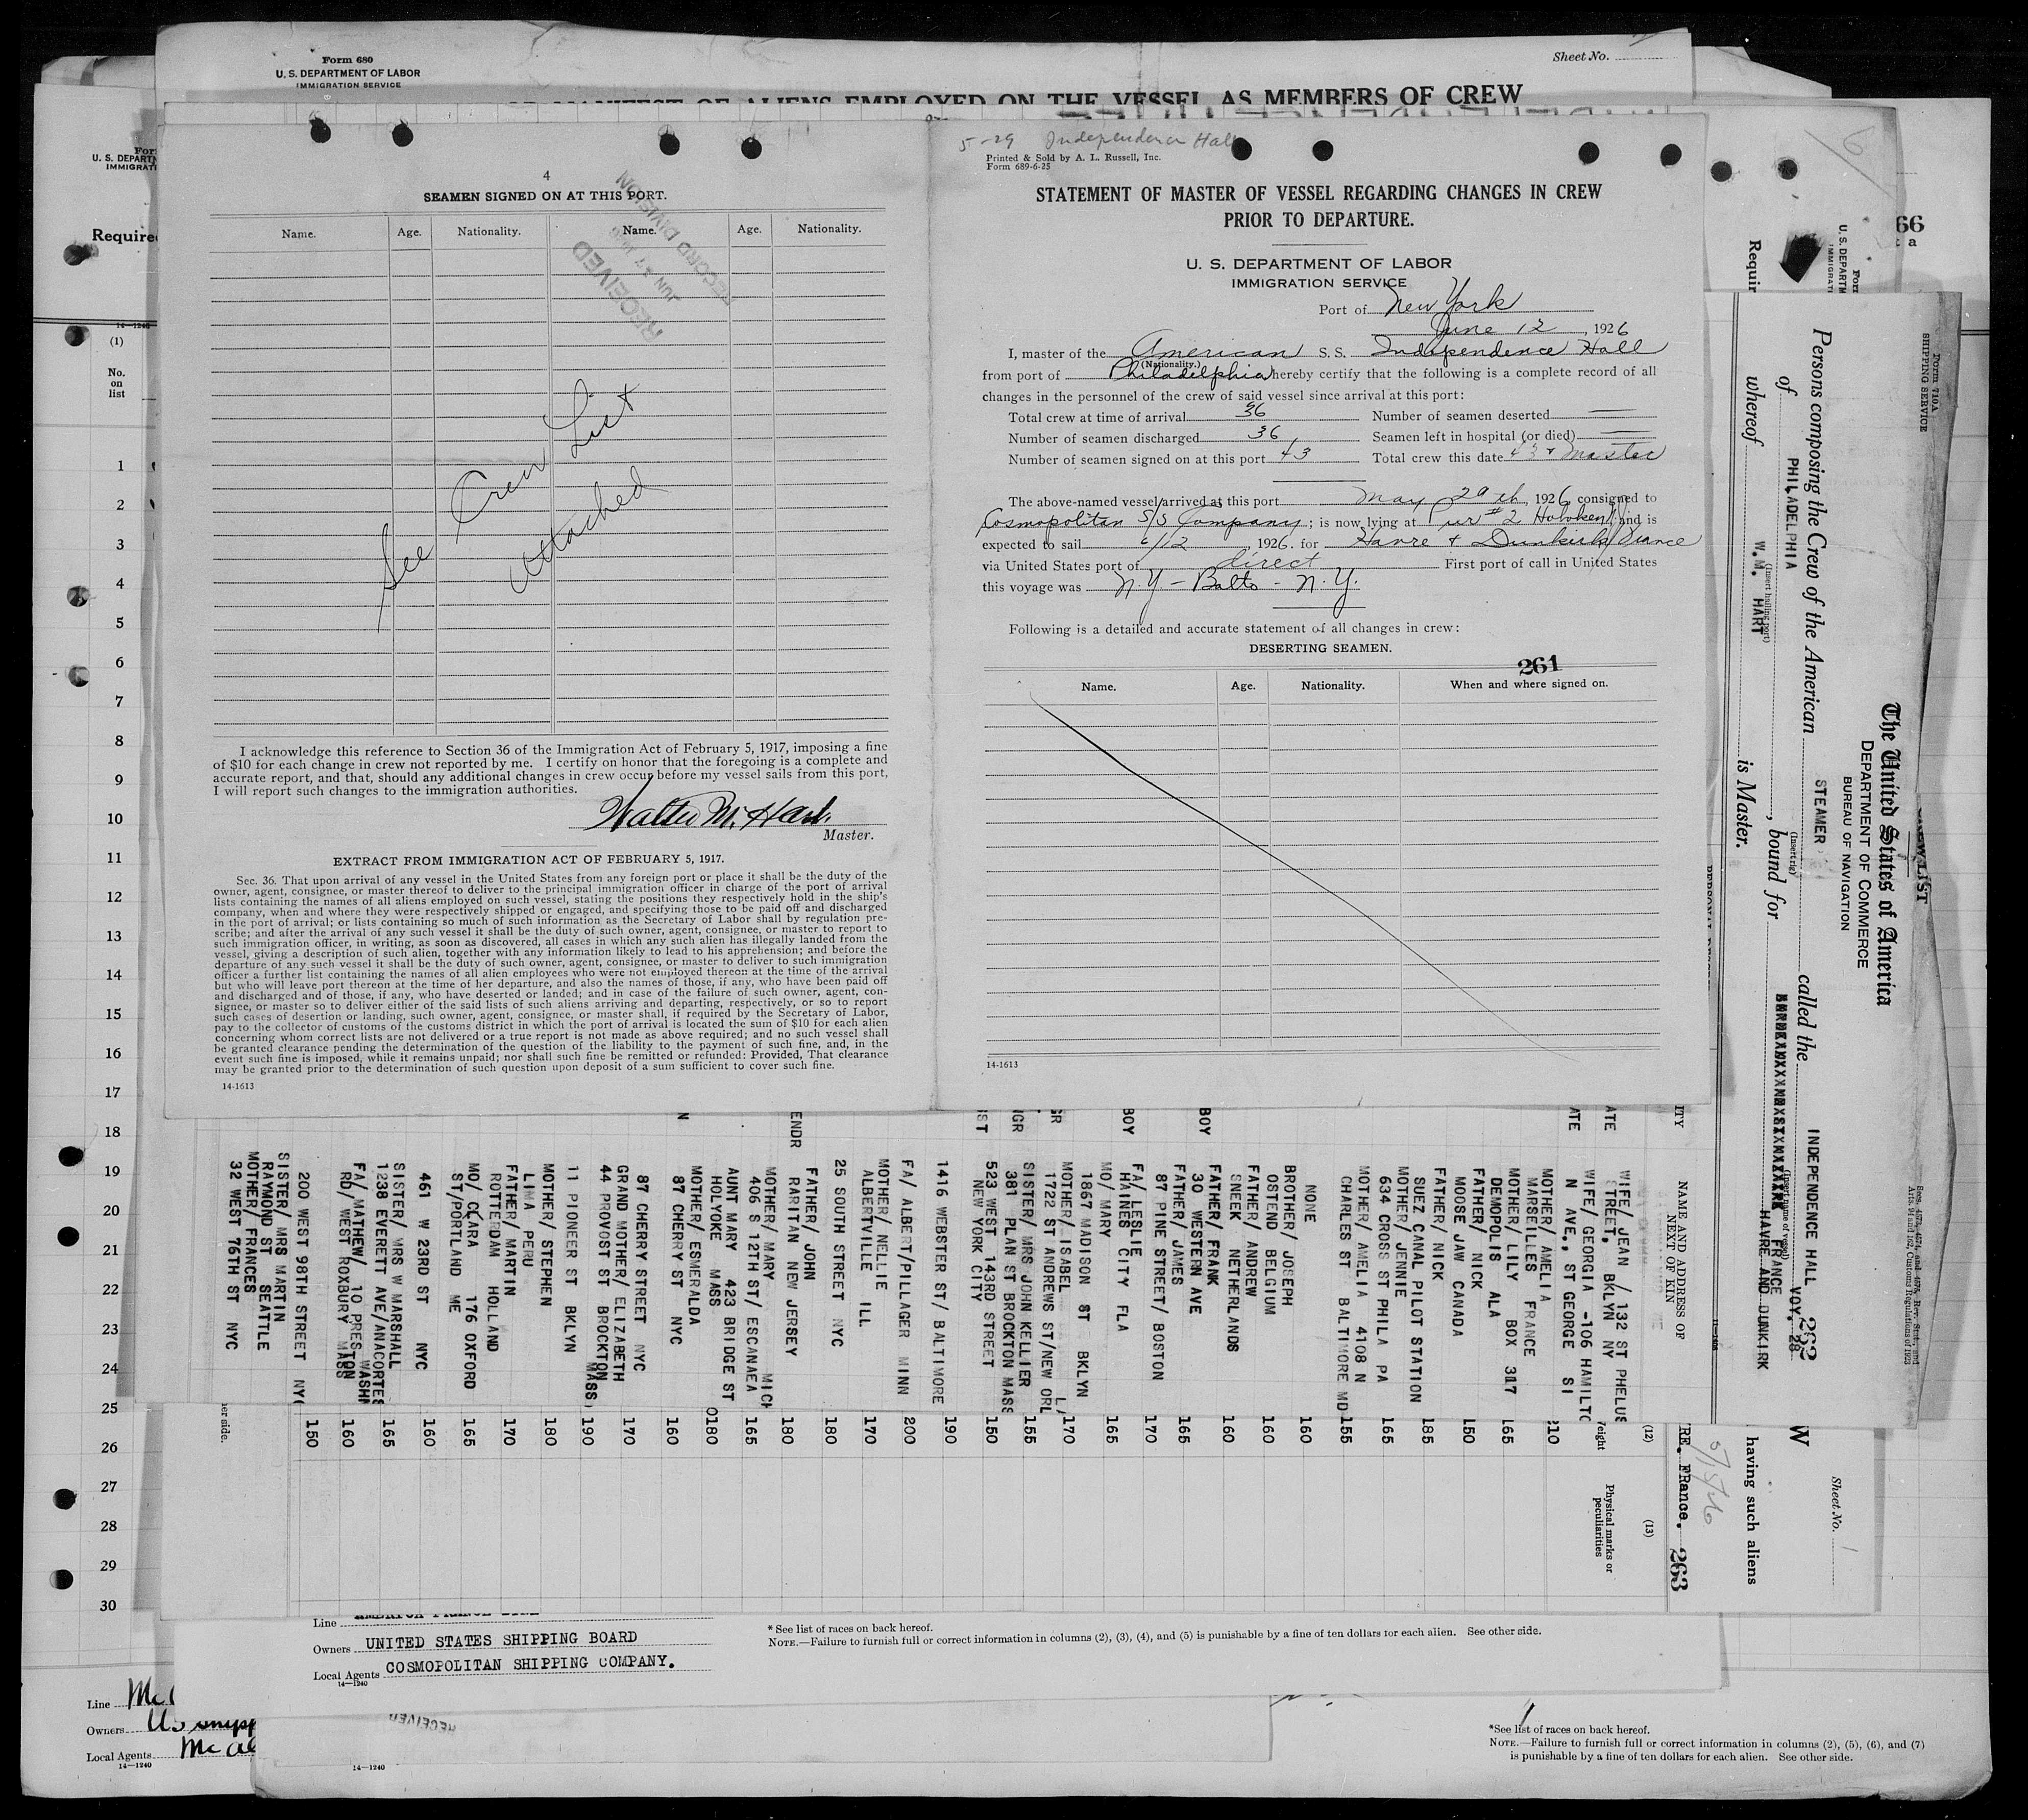 Form 680
U. S. DEPARTMENT OF LABOR
IMMIGRATION SERVICE
Sheet No.
MANIFEST OF ALIENS EMPLOYED ON THE VESSEL AS MEMBERS OF CREW
4
SEAMEN SIGNED ON AT THIS PORT.
Name. Age. Nationality. Name. Age. Nationality.
RECEIVED
JUN
RECORD DIVISION
See Crew List
Attached
I acknowledge this reference to Section 36 of the Immigration Act of February 5, 1917, imposing a fine
of $10 for each change in crew not reported by me. I certify on honor that the foregoing is a complete and
accurate report, and that, should any additional changes in crew occur before my vessel sails from this port,
I will report such changes to the immigration authorities.
Walter M. Hart
Master.
EXTRACT FROM IMMIGRATION ACT OF FEBRUARY 5, 1917.
Sec. 36. That upon arrival of any vessel in the United States from any foreign port or place it shall be the duty of the
owner, agent, consignee, or master thereof to deliver to the principal immigration officer in charge of the port of arrival
lists containing the names of all aliens employed on such vessel, stating the positions they respectively hold in the ship's
company, when and where they were respectively shipped or engaged, and specifying those to be paid off and discharged
in the port of arrival; or lists containing so much of such information as the Secretary of Labor shall by regulation pre-
scribe; and after the arrival of any such vessel it shall be the duty of such owner, agent, consignee, or master to report to
such immigration officer, in writing, as soon as discovered, all cases in which any such alien has illegally landed from the
vessel, giving a description of such alien, together with any information likely to lead to his apprehension; and before the
departure of any such vessel it shall be the duty of such owner, agent, consignee, or master to deliver to such immigration
officer a further list containing the names of all alien employees who were not employed thereon at the time of the arrival
but who will leave port thereon at the time of her departure, and also the names of those, if any, who have been paid off
and discharged and of those, if any, who have deserted or landed; and in case of the failure of such owner, agent, con-
signee, or master so to deliver either of the said lists of such aliens arriving and departing, respectively, or so to report
such cases of desertion or landing, such owner, agent, consignee, or master shall, if required by the Secretary of Labor,
pay to the collector of customs of the customs district in which the port of arrival is located the sum of $10 for each alien
concerning whom correct lists are not delivered or a true report is not made as above required; and no such vessel shall
be granted clearance pending the determination of the question of the liability to the payment of such fine, and, in the
event such fine is imposed, while it remains unpaid; nor shall such fine be remitted or refunded: Provided, That clearance
may be granted prior to the determination of such question upon deposit of a sum sufficient to cover such fine.
14-1613
5-29 Independence Hall
Printed & Sold by A. L. Russell, Inc.
Form 689-6-25
STATEMENT OF MASTER OF VESSEL REGARDING CHANGES IN CREW
PRIOR TO DEPARTURE.
U. S. DEPARTMENT OF LABOR
IMMIGRATION SERVICE
Port of New York
June 12, 1926
I, master of the American S. S. Independence Hall
(Nationality.)
from port of Philadelphia hereby certify that the following is a complete record of all
changes in the personnel of the crew of said vessel since arrival at this port:
Total crew at time of arrival 36 Number of seamen deserted —
Number of seamen discharged 36 Seamen left in hospital (or died) —
Number of seamen signed on at this port 43 Total crew this date 43 + Master
The above-named vessel arrived at this port May 29th, 1926 consigned to
Cosmopolitan S/S Company; is now lying at Pier #2 Hoboken and is
expected to sail 6/12, 1926. for Havre + Dunkirk France
via United States port of direct First port of call in United States
this voyage was N.Y - Balto - N.Y.
Following is a detailed and accurate statement of all changes in crew:
DESERTING SEAMEN.
261
Name. Age. Nationality. When and where signed on.
14-1613
U. S. DEPARTM
IMMIGRATI
Require
14-1240
(1)
No.
on
list
1
2
3
4
5
6
7
8
9
10
11
12
13
14
15
16
17
18
19
20
21
22
23
24
25
26
27
28
29
30
Form 710A
SHIPPING SERVICE
CREW LIST
The United States of America
DEPARTMENT OF COMMERCE
BUREAU OF NAVIGATION
Secs. 4573, 4574, and 4575, Rev. Stat., and
Arts. 91 and 162, Customs Regulations of 1923
Persons composing the Crew of the American STEAMER called the INDEPENDENCE HALL VOY. 28
(Insert rig) (Insert name of vessel)
262
of PHILADELPHIA, bound for FRANCE
(Insert hailing port)
HAVRE AND DUNKIRK
whereof W.M. HART is Master.
NAME AND ADDRESS OF
NEXT OF KIN
WIFE/JEAN / 132 ST PHELUS
STREET, BKLYN NY
WIFE/ GEORGIA -106 HAMILTO
N AVE., ST GEORGE SI
MOTHER/ AMELIA
MARSEILLES FRANCE
MOTHER/ LILY BOX 317
DEMOPOLIS ALA
FATHER/ NICK
MOOSE JAW CANADA
FATHER/ NICK
SUEZ CANAL PILOT STATION
MOTHER/ JENNIE
634 CROSS ST PHILA PA
MOTHER/ AMELIA 4108 N
CHARLES ST BALTIMORE MD
NONE
BROTHER/ JOSEPH
OSTEND BELGIUM
FATHER/ ANDREW
SNEEK NETHERLANDS
FATHER/ FRANK
30 WESTERN AVE
FATHER/ JAMES
87 PINE STREET/ BOSTON
FA/ LESLIE
HAINES CITY FLA
MO/ MARY
1867 MADISON ST BKLYN
MOTHER/ ISABEL
1722 ST ANDREWS ST/NEW ORL
SISTER/ MRS JOHN KELLIER
381 PLAN ST BROCKTON MASS
523 WEST 143RD STREET
NEW YORK CITY
1416 WEBSTER ST/ BALTIMORE
FA/ ALBERT/PILLAGER MINN
MOTHER/ NELLIE
ALBERTVILLE ILL
25 SOUTH STREET NYC
FATHER/ JOHN
RARITAN NEW JERSEY
MOTHER/ MARY MICH
406 S 12TH ST/ ESCANAEA
AUNT MARY 423 BRIDGE ST
HOLYOKE MASS
MOTHER/ ESMERALDA
87 CHERRY ST NYC
87 CHERRY STREET NYC
GRAND MOTHER/ ELIZABETH
44 PROVOST ST BROCKTON MASS
11 PIONEER ST BKLYN
MOTHER/ STEPHEN
LIMA PERU
FATHER/ MARTIN
ROTTERDAM HOLLAND
MO/ CLARA 176 OXFORD
ST/PORTLAND ME
461 W 23RD ST NYC
SISTER/ MRS W MARSHALL
1238 EVERETT AVE/ANACORTES WASH
FA/ MATHEW/ 10 PRESTON
RD/ WEST ROXBURY MASS
200 WEST 98TH STREET NYC
SISTER/ MRS MARTIN
RAYMOND ST SEATTLE
MOTHER/ FRANCES
32 WEST 76TH ST NYC
(12) (13)
Physical marks or
peculiarities
165
150
185
165
155
160
160
160
165
170
165
170
155
150
190
200
170
180
180
165
0180
160
170
190
180
170
165
160
165
160
150
FRance. 263
having such aliens
Sheet No. 1
Owners UNITED STATES SHIPPING BOARD
Local Agents COSMOPOLITAN SHIPPING COMPANY.
14-1240
* See list of races on back hereof.
NOTE.—Failure to furnish full or correct information in columns (2), (3), (4), and (5) is punishable by a fine of ten dollars for each alien. See other side.
Line
Owners
Local Agents
14-1240
RECEIVED
14-1240
*See list of races on back hereof.
NOTE.—Failure to furnish full or correct information in columns (2), (5), (6), and (7)
is punishable by a fine of ten dollars for each alien. See other side.